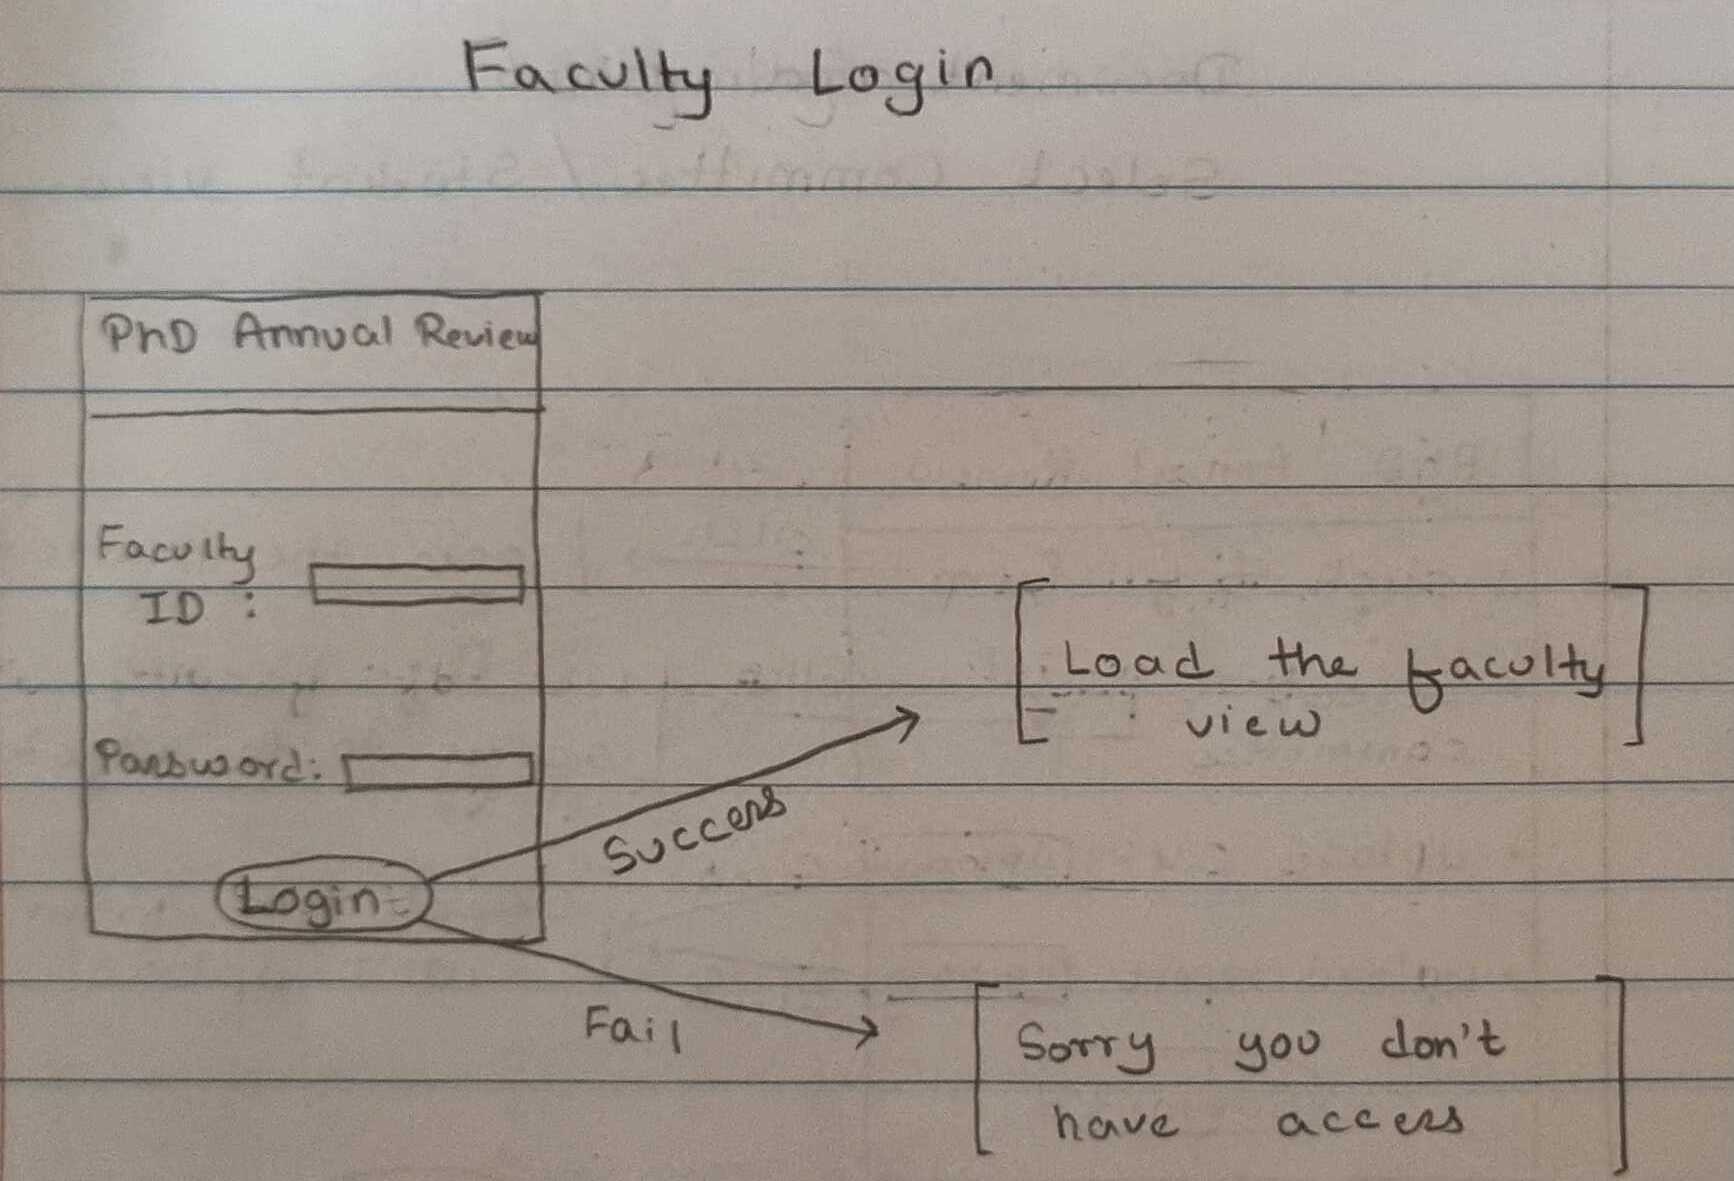 Faculty Login
PhD Annual Review
Faculty
ID :
Password:
Login
Success
Load the faculty
view
Fail
Sorry you don't
have access